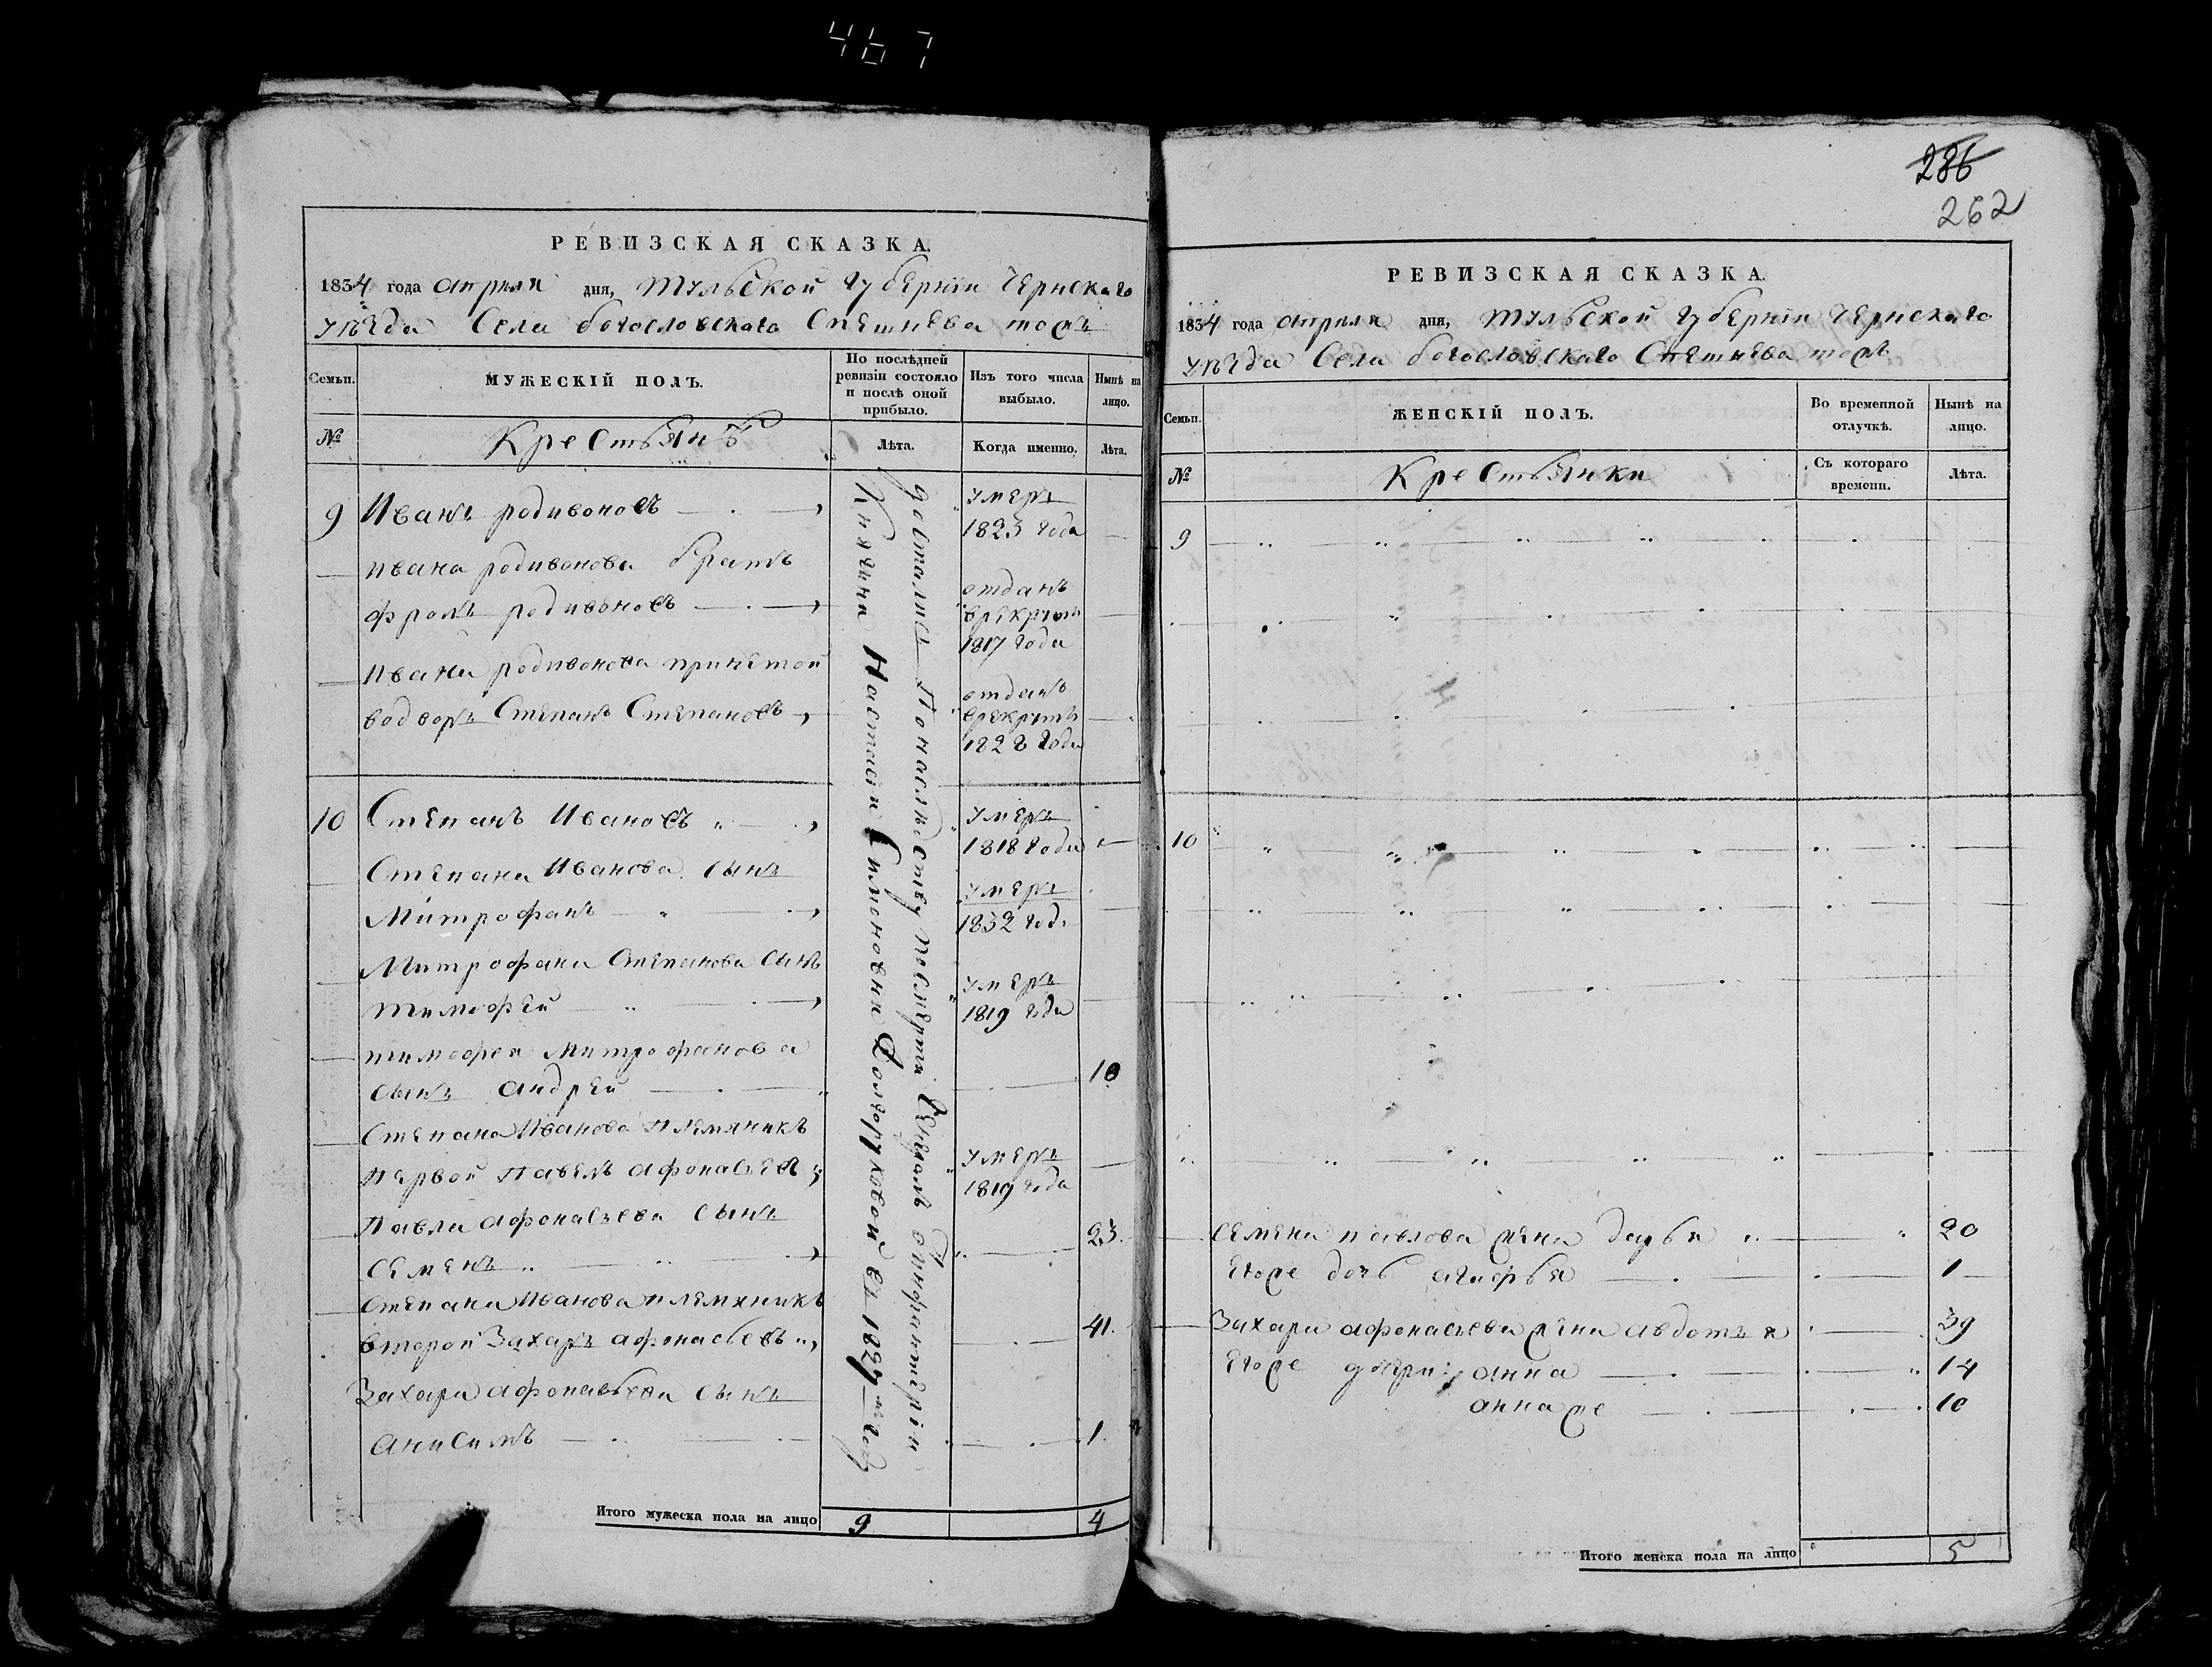 467
РЕВИЗСКАЯ СКАЗКА.
1834 года апреля дня, Тульской губернiи Чернскаго
уѣзда Села богословскаго Спешнева тожъ
Семьи. МУЖЕСКІЙ ПОЛЪ. По послѣдней ревизіи состояло и послѣ оной прибыло. Изъ того числа выбыло. Нынѣ на лицо.
№ Крестьянъ Лѣта. Когда именно. Лѣта.
9 Иванъ родивоновъ умеръ
1823 года
ивана родивонова братъ
фролъ родивоновъ отданъ
врекруты
1817 года
ивана родивонова принетой
водворъ Степанъ Степановъ отданъ
врекруты
1828 года
10 Степанъ Ивановъ умеръ
1818 года
Степана Иванова сынъ
Митрофанъ умеръ
1832 года
Митрофана Степанова сынъ
тимофей умеръ
1819 года
тимофея Митрофанова
сынъ андрей 10
Степана Иванова племяникъ
первой Павелъ афонасьевъ умеръ
1819 года
Павла афонасьева сынъ
Семенъ 23.
Степана Иванова племяникъ
второй Захаръ афонасьевъ 41.
Захара афонасьева сынъ
анисимъ 1.
достались Понаследству посмерти Генералъ отинфантеріи
Княгини Настасіи Симоновни Долгоруковой въ 1827м году
Итого мужеска пола на лицо 9 4
286
262
РЕВИЗСКАЯ СКАЗКА.
1834 года апреля дня, Тульской губернiи Чернскаго
уѣзда Села богословскаго Спешнева тожъ
Семьи. ЖЕНСКІЙ ПОЛЪ. Во временной отлучкѣ. Нынѣ на лицо.
№ Крестьянки Съ котораго времени. Лѣта.
9
10
Семена павлова жена дарья 20
Егоже дочь агафья 1
Захара афонасьева жена авдотья 39
Егоже дочери: анна 14
аннаже 10
Итого женска пола на лицо 5